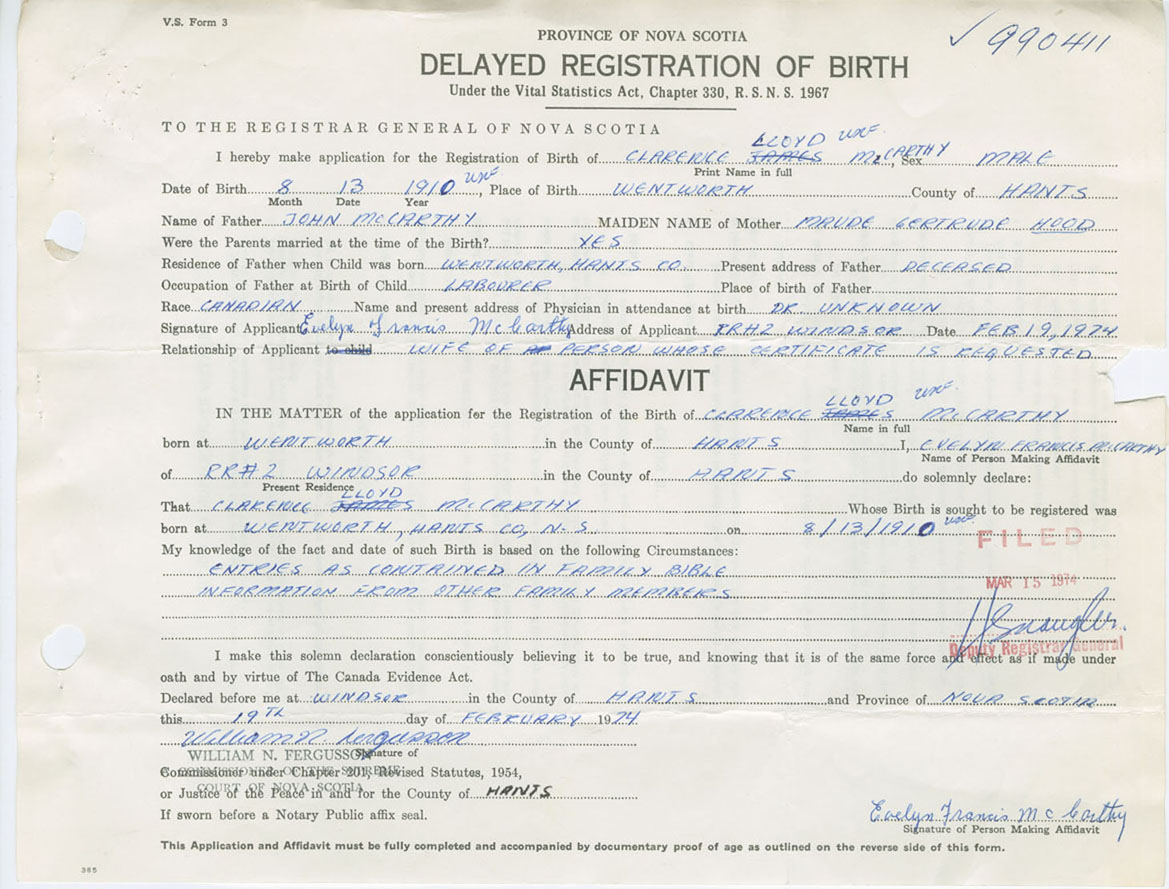 V.S. Form 3
✓ 990411
PROVINCE OF NOVA SCOTIA
DELAYED REGISTRATION OF BIRTH
Under the Vital Statistics Act, Chapter 330, R. S. N. S. 1967
TO THE REGISTRAR GENERAL OF NOVA SCOTIA
LLOYD WNF
I hereby make application for the Registration of Birth of CLARENCE JAMES McCARTHY, Sex MALE
Print Name in full
Date of Birth 8 13 1910 WNF, Place of Birth WENTWORTH County of HANTS
Month Date Year
Name of Father JOHN McCARTHY MAIDEN NAME of Mother MAUDE GERTRUDE HOOD
Were the Parents married at the time of the Birth? YES
Residence of Father when Child was born WENTWORTH, HANTS CO. Present address of Father DECEASED
Occupation of Father at Birth of Child LABOURER Place of birth of Father
Race CANADIAN Name and present address of Physician in attendance at birth DR. UNKNOWN
Signature of Applicant Evelyn Francis McCarthy Address of Applicant RR#2 WINDSOR Date FEB 19, 1974
Relationship of Applicant to child WIFE OF PERSON WHOSE CERTIFICATE IS REQUESTED
AFFIDAVIT
LLOYD WNF
IN THE MATTER of the application for the Registration of the Birth of CLARENCE JAMES McCARTHY
Name in full
born at WENTWORTH in the County of HANTS I, EVELYN FRANCIS McCARTHY
Name of Person Making Affidavit
of RR#2 WINDSOR in the County of HANTS do solemnly declare:
Present Residence
LLOYD
That CLARENCE JAMES McCARTHY Whose Birth is sought to be registered was
born at WENTWORTH, HANTS CO, N.S. on 8/13/1910 WNF
FILED
My knowledge of the fact and date of such Birth is based on the following Circumstances:
ENTRIES AS CONTAINED IN FAMILY BIBLE
MAR 15 1974
INFORMATION FROM OTHER FAMILY MEMBERS
Deputy Registrar General
I make this solemn declaration conscientiously believing it to be true, and knowing that it is of the same force and effect as if made under
oath and by virtue of The Canada Evidence Act.
Declared before me at WINDSOR in the County of HANTS and Province of NOVA SCOTIA
this 19TH day of FEBRUARY 1974
William N. Fergusson
WILLIAM N. FERGUSSON
Signature of
A COMMISSIONER OF THE SUPREME
Commissioner under Chapter 201, Revised Statutes, 1954,
COURT OF NOVA SCOTIA
or Justice of the Peace in and for the County of HANTS
If sworn before a Notary Public affix seal.
Evelyn Francis McCarthy
Signature of Person Making Affidavit
This Application and Affidavit must be fully completed and accompanied by documentary proof of age as outlined on the reverse side of this form.
385